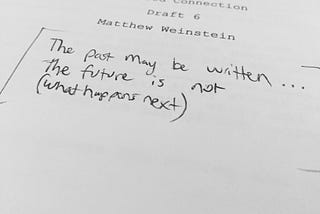 Connection
Draft 6
Matthew Weinstein
The past may be written ...
The future is not
(what happens next)